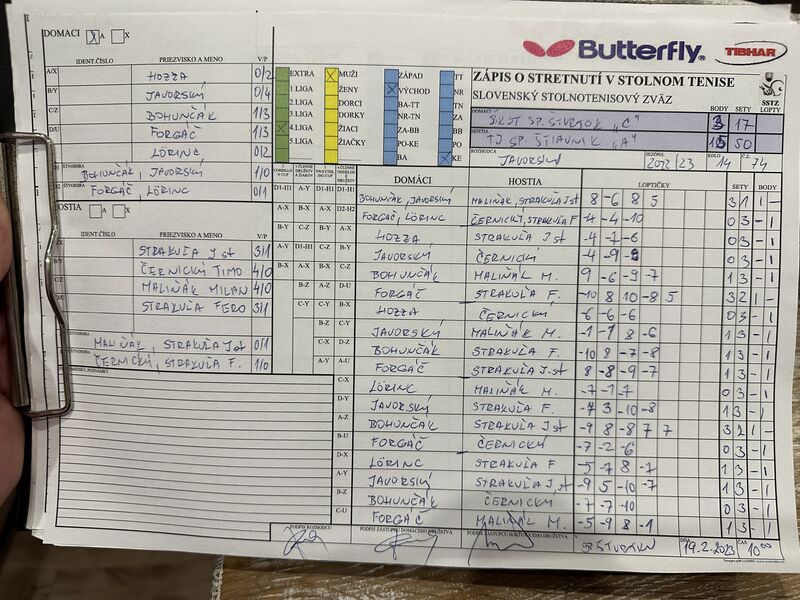 DOMÁCI A X
IDENT.ČÍSLO PRIEZVISKO A MENO V/P
A/X HOZZA 0/2
B/Y JAVORSKÝ 0/4
C/Z BOHUNČÁK 1/3
D/U FORGÁČ 1/3
LÖRINC 0/2
BOHUNČÁK, JAVORSKÝ 1/0
FORGÁČ, LÖRINC 0/1
HOSTIA A X
IDENT.ČÍSLO PRIEZVISKO A MENO V/P
STRAKUĽA J st 3/1
ČERNICKÝ TIMO 4/0
MALIŇÁK MILAN 4/0
STRAKUĽA FERO 3/1
MALIŇÁK, STRAKUĽA Jst 0/1
ČERNICKÝ, STRAKUĽA F. 1/0
Butterfly. TIBHAR
ZÁPIS O STRETNUTÍ V STOLNOM TENISE
SLOVENSKÝ STOLNOTENISOVÝ ZVÄZ
SSTZ
EXTRA MUŽI ZÁPAD TT
1.LIGA ŽENY VÝCHOD NR
2.LIGA DORCI BA-TT TN
3.LIGA DORKY NR-TN ZA
4.LIGA ŽIACI ZA-BB BB
5.LIGA ŽIAČKY PO-KE PO
BA KE
BODY SETY LOPTY
DOMÁCI ŠKST SP. ŠTVRTOK "C" 3 17
HOSTIA TJ SP. ŠTIAVNIK "A" 15 50
ROZHODCA JAVORSKÝ SEZÓNA 2022/23 KOLO 14 Č.Z. 74
DOMÁCI HOSTIA LOPTIČKY SETY BODY
D1-H1 BOHUNČÁK, JAVORSKÝ MALIŇÁK, STRAKUĽA Jst 8 -6 8 5 3 1 1 -
D2-H2 FORGÁČ, LÖRINC ČERNICKÝ, STRAKUĽA F -4 -4 -10 0 3 - 1
A-X HOZZA STRAKUĽA J st -4 -7 -6 0 3 - 1
B-Y JAVORSKÝ ČERNICKÝ -4 -9 -9 0 3 - 1
C-Z BOHUNČÁK MALIŇÁK M. 9 -6 -9 -7 1 3 - 1
D-U FORGÁČ STRAKUĽA F. -10 8 10 -8 5 3 2 1 -
HOZZA ČERNICKÝ -6 -6 -6 0 3 - 1
JAVORSKÝ MALIŇÁK M. -1 -1 8 -6 1 3 - 1
BOHUNČÁK STRAKUĽA F. -10 8 -7 -8 1 3 - 1
A-U FORGÁČ STRAKUĽA J.st 8 -8 -9 -7 1 3 - 1
C-X LÖRINC MALIŇÁK M. -7 -1 -7 0 3 - 1
D-Y JAVORSKÝ STRAKUĽA F. -7 3 -10 -8 1 3 - 1
A-Z BOHUNČÁK STRAKUĽA Jst -9 8 -8 7 7 3 2 1 -
B-U FORGÁČ ČERNICKÝ -7 -2 -6 0 3 - 1
D-X LÖRINC STRAKUĽA F -5 -7 8 -7 1 3 - 1
A-Y JAVORSKÝ STRAKUĽA J st -9 5 -10 -7 1 3 - 1
B-Z BOHUNČÁK ČERNICKÝ -7 -7 -10 0 3 - 1
C-U FORGÁČ MALIŇÁK M. -5 -9 8 -1 1 3 - 1
PODPIS ROZHODCU PODPIS ZÁSTUPCU DOMÁCEHO DRUŽSTVA PODPIS ZÁSTUPCU HOSŤUJÚCEHO DRUŽSTVA V DŇA 19.2.2023 ČAS 10 00